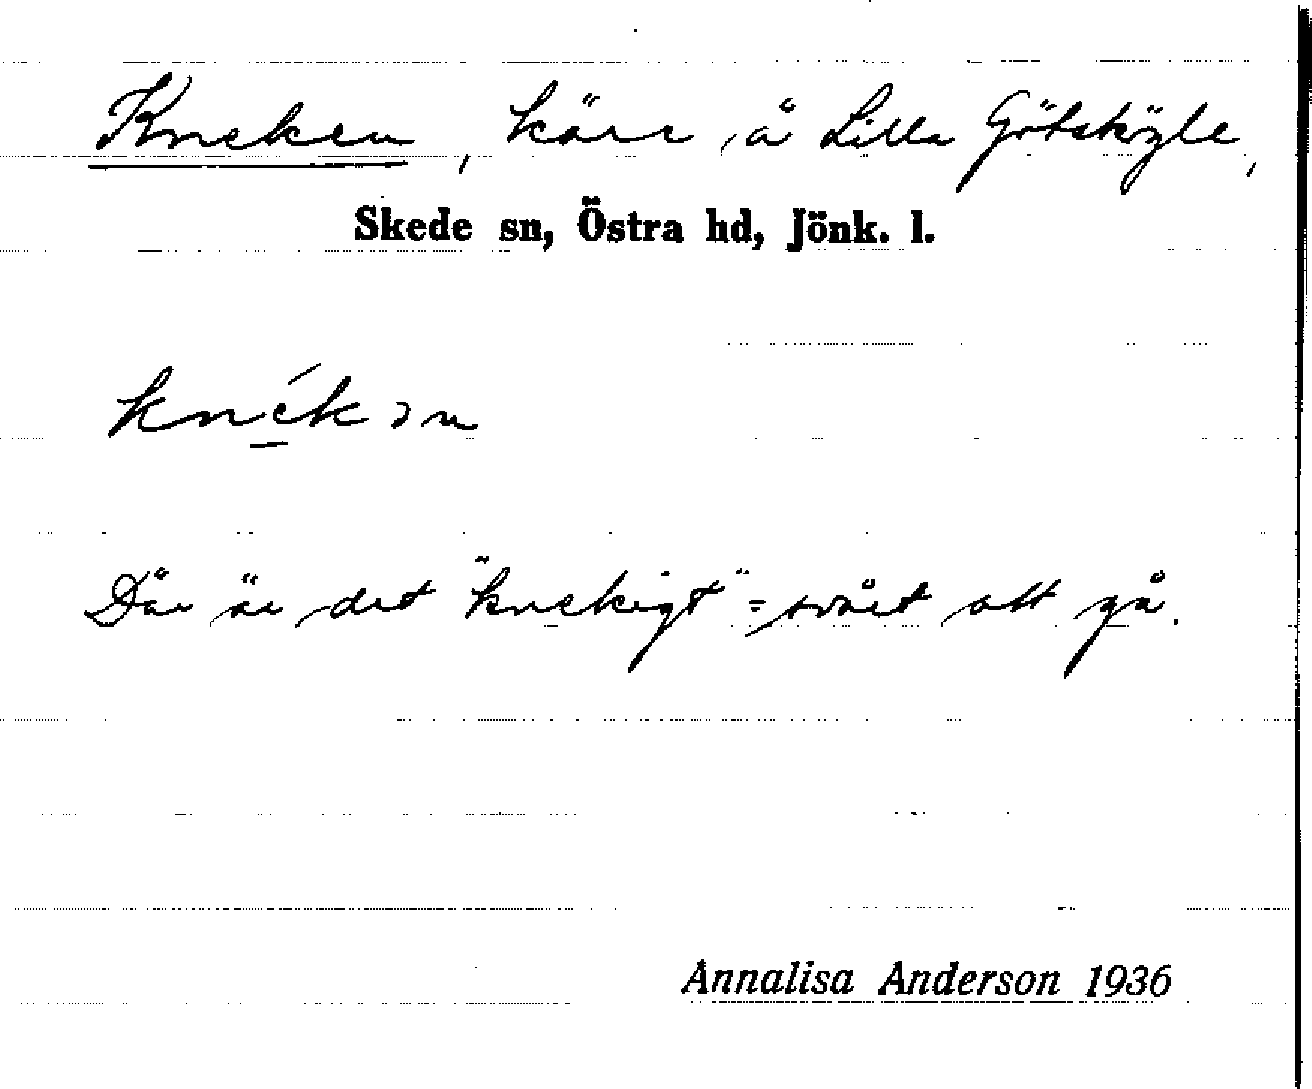 Kneken, kärr å Lilla Götsköyle,
Skede sn, Östra hd, Jönk. l.
knékən
Där är det "knekigt" = svårt att gå.
Annalisa Anderson 1936